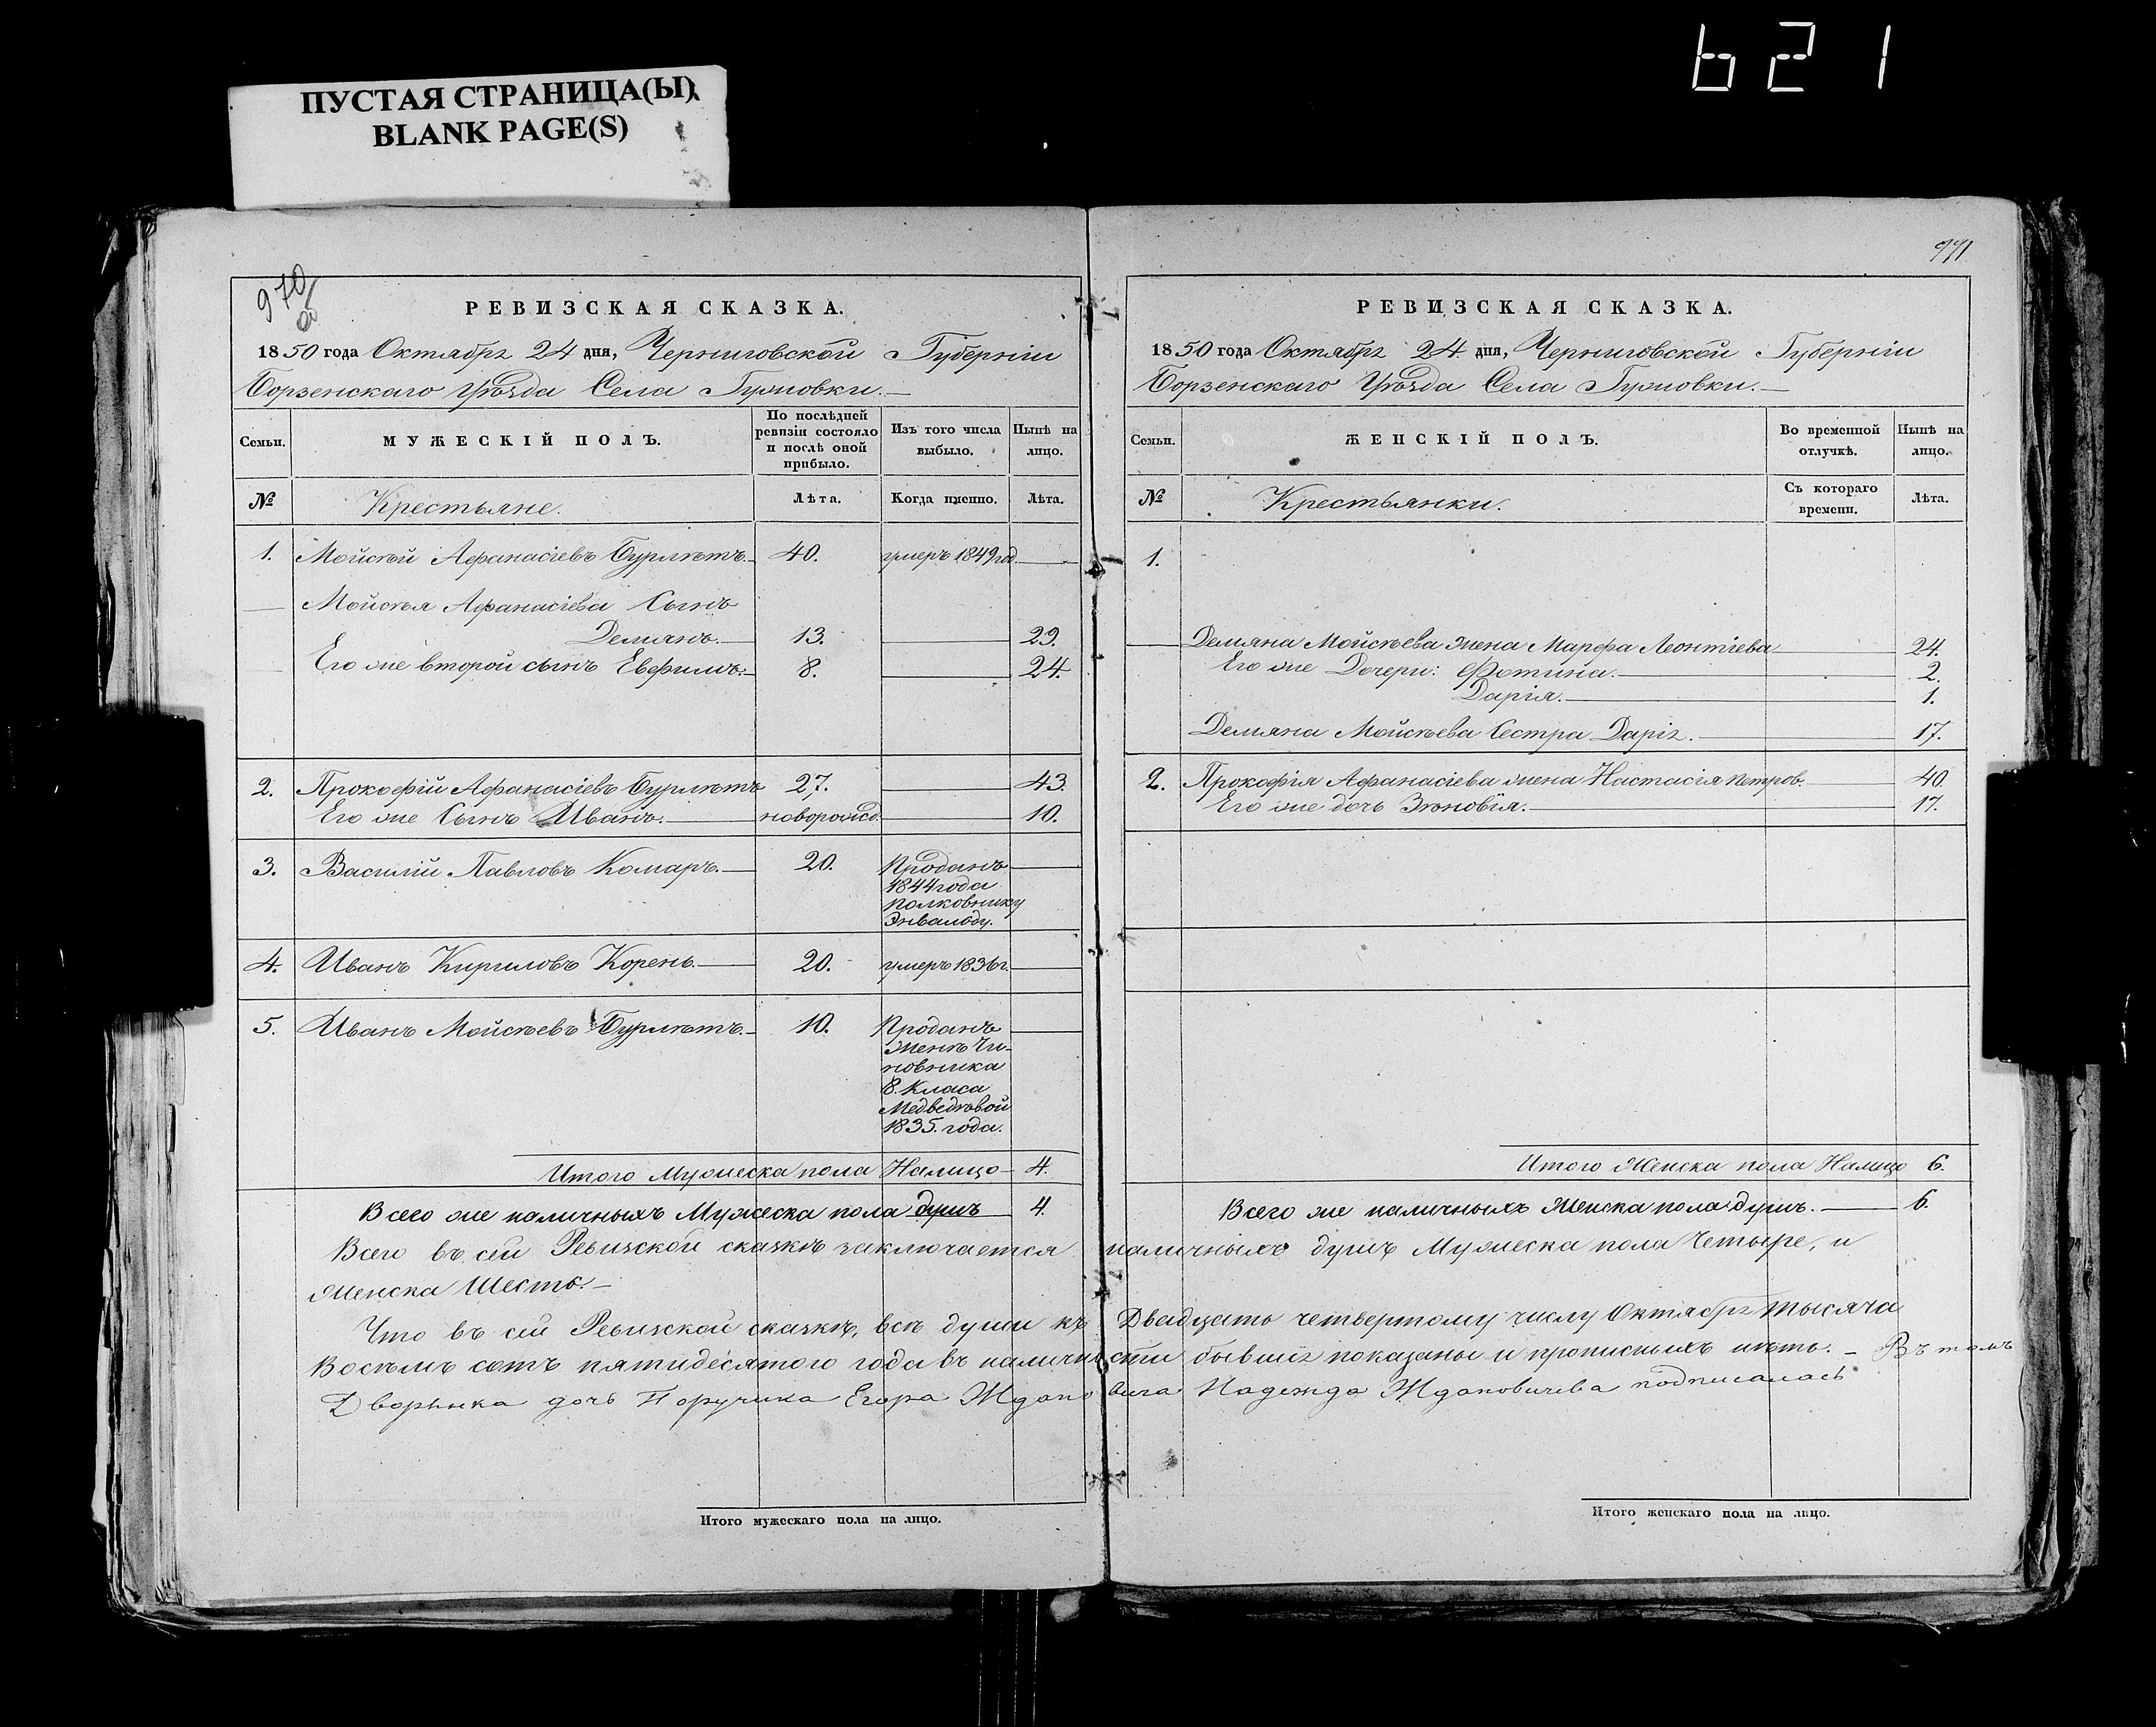 621
ПУСТАЯ СТРАНИЦА(Ы)
BLANK PAGE(S)
970
об
РЕВИЗСКАЯ СКАЗКА.
1850 года Октября 24 дня, Черниговской Губерніи
Борзенскаго Уѣзда Села Гужовки.
Семьи.
МУЖЕСКІЙ ПОЛЪ.
По послѣдней ревизіи состояло и послѣ оной прибыло.
Изъ того числа выбыло.
Нынѣ на лицо.
№ Крестьяне. Лѣта. Когда именно. Лѣта.
1. Мойсѣй Афанасіевъ Бурлѣтъ. 40. умеръ 1849 год.
Мойсѣя Афанасіева Сынъ
Демянъ. 13. 29.
Его же второй сынъ Евфимъ. 8. 24.
2. Прокофій Афанасіевъ Бурлѣтъ 27. 43.
Его же Сынъ Иванъ. новорожд. 10.
3. Василій Павловъ Комаръ. 20. Проданъ
1844 года
полковнику
Энвальду.
4. Иванъ Кириловъ Корень. 20. умеръ 1836 г.
5. Иванъ Мойсѣевъ Бурлѣтъ. 10. Проданъ
женѣ Чи-
новника
8. Класа
Медведѣвой
1835. года.
Итого Мужеска пола Налицо 4.
Всего же наличныхъ Мужеска пола душъ 4.
971
РЕВИЗСКАЯ СКАЗКА.
1850 года Октября 24 дня, Черниговской Губерніи
Борзенскаго Уѣзда Села Гужовки.
Семьи.
ЖЕНСКІЙ ПОЛЪ.
Во временной отлучкѣ.
Нынѣ на лицо.
№ Крестьянки. Съ котораго времени. Лѣта.
1.
Демяна Мойсѣева жена Марфа Леонтіева 24.
Его же Дочери: Фотина. 2.
Дарія. 1.
Демяна Мойсѣева Сестра Дарія. 17.
2. Прокофія Афанасіева жена Настасія Петров. 40.
Его же дочь Зѣновія. 17.
Итого Женска пола Налицо 6.
Всего же наличныхъ Женска пола душъ. 6.
Всего въ сей Ревизской сказкѣ заключается наличныхъ душъ Мужеска пола Четыре, и
Женска Шесть.
Что въ сей Ревизской сказкѣ, всѣ души къ Двадцать четвертому числу Октября тысяча
Восѣмъ сотъ пятидесятого года въ наличности бывшіе показаны и прописныхъ нѣтъ. Въ томъ
Дворянка дочь Поручика Егора Ждановича Надежда Ждановичева подписалась
Итого мужескаго пола на лицо.
Итого женскаго пола на лицо.